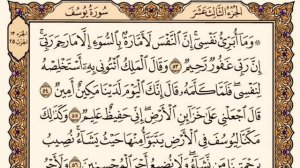 الجزء الثالث عشر
سورة يوسف
وَمَا أُبَرِّئُ نَفْسِي إِنَّ النَّفْسَ لَأَمَّارَةٌ بِالسُّوءِ إِلَّا مَا رَحِمَ رَبِّي
إِنَّ رَبِّي غَفُورٌ رَحِيمٌ ٥٣ وَقَالَ الْمَلِكُ ائْتُونِي بِهِ أَسْتَخْلِصْهُ
لِنَفْسِي فَلَمَّا كَلَّمَهُ قَالَ إِنَّكَ الْيَوْمَ لَدَيْنَا مَكِينٌ أَمِينٌ ٥٤
قَالَ اجْعَلْنِي عَلَى خَزَائِنِ الْأَرْضِ إِنِّي حَفِيظٌ عَلِيمٌ ٥٥ وَكَذَلِكَ
مَكَّنَّا لِيُوسُفَ فِي الْأَرْضِ يَتَبَوَّأُ مِنْهَا حَيْثُ يَشَاءُ نُصِيبُ